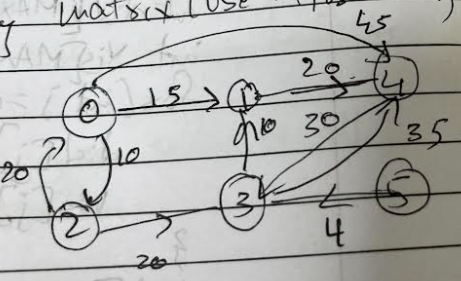 Matrix (Use
45
20
0 15 1 4
20 10 10 30 35
2 3 5
20 4